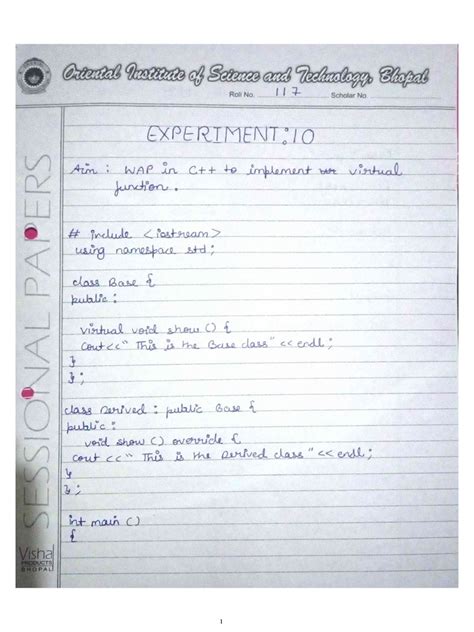 Oriental Institute of Science and Technology, Bhopal
Roll No. 117 Scholar No.
EXPERIMENT:10
Aim : WAP in C++ to implement virtual
function.
# include <iostream>
using namespace std;
class Base {
public :
virtual void show () {
cout<<" This is the Base class" << endl;
}
};
class Derived : public Base {
public :
void show () override {
cout << " This is the Derived class" << endl;
}
};
int main ()
{
SESSIONAL PAPERS
Visha
PRODUCTS
BHOPAL
1